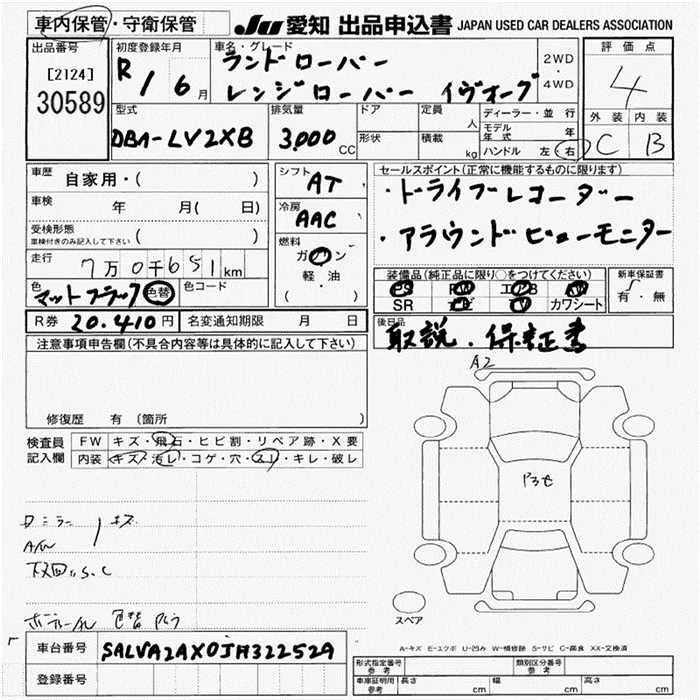 車内保管・守衛保管 JU 愛知 出品申込書 JAPAN USED CAR DEALERS ASSOCIATION
出品番号 初度登録年月 車名・グレード 評価点
[2124] R1 6月 ランドローバー 2WD・4WD 4
30589 レンジローバー イヴォーグ
型式 排気量 ドア 定員 人 ディーラー・並行 外装 内装
DBA-LV2XB 3,000CC 形状 積載 kg モデル年式 年 C B
ハンドル 左 右
車歴 自家用・( ) シフト AT セールスポイント(正常に機能するものに限ります)
車検 年 月(日) 冷房 AAC ・ドライブレコーダー
受検形態 ( ) ・アラウンドビューモニター
車検付きのみ記入して下さい
走行 7万0千651km 燃料 ガソリン 軽・油 ( )
装備品(純正品に限り○をつけてください) 新車保証書
色 マットブラック 色替 色コード PS PW エアB AW 有・無
SR ナビ TV カワシート
R券 20.410円 名変通知期限 月 日 後日品
取説.保証書
注意事項申告欄(不具合内容等は具体的に記入して下さい)
A2
修復歴 有 (箇所 )
検査員 FW キズ・飛石・ヒビ割・リペア跡・X要
記入欄 内装 キズ・汚レ・コゲ・穴・スレ・キレ・破レ
ミラー キズ
A/W
下回りS.C
色替
スペア
車台番号 SALVA2AX0JH322529
A-キズ E-エクボ U-凹み W-補修跡 S-サビ C-腐食 XX-交換済
登録番号
形式指定番号 参考 類別区分番号 参考
車庫証明用 参考 長さ cm 幅 cm 高さ cm